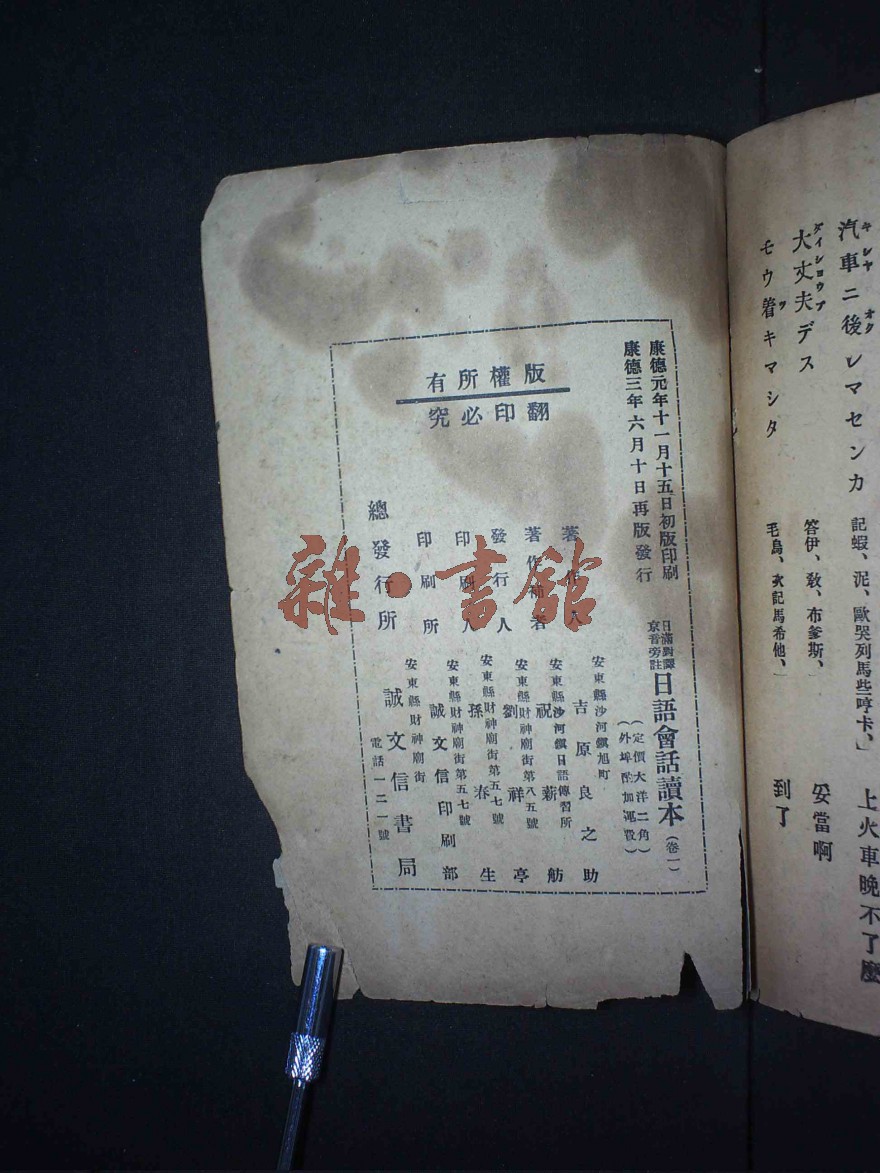 キシヤ オク
汽車ニ後レマセンカ
記蝦、泥、歐哭列馬些哼卡、」
上火車晚不了麼
ダイジョウブ
大丈夫デス
答伊、敎、布爹斯、」
妥當啊
ツ
モウ着キマシタ
毛烏、次記馬希他、」
到了
康德元年十一月十五日初版印刷
康德三年六月十日再版發行
日滿對譯
京音旁註
日語會話讀本(卷一)
(定價大洋二角)
(外埠酌加運費)
版權所有
翻印必究
著作人
安東縣沙河鎭旭町
吉原良之助
著作補者
安東縣沙河鎭日語傳習所
祝薪舫
發行人
安東縣財神廟街第八五號
劉祥亭
印刷人
安東縣財神廟街第五七號
孫春生
印刷所
安東縣財神廟街第五七號
誠文信印刷部
總發行所
安東縣財神廟街
誠文信書局
電話一二一號
雜·書館